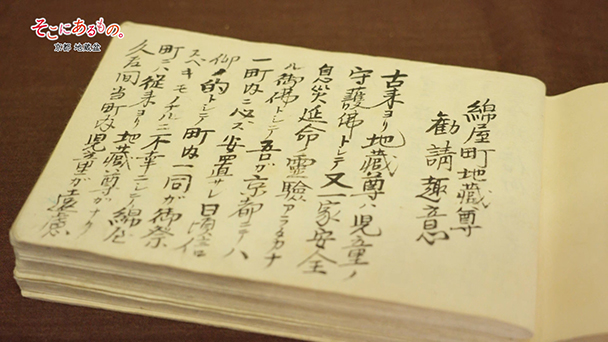 そこにあるもの。
京都 地蔵盆
綿屋町地蔵尊
勧請趣意
古来ヨリ地蔵尊ハ児童ノ
守護佛トシテ又一家安全
息災延命ノ霊験アラタカナ
ル御佛トシテ吾が京都ニテハ
一町内ニ必ズ安置サレ日頃信
仰ノ的トシテ町内一同が御祭
スベキモノナルニ不幸ニシテ綿屋
町ニハ従来ヨリ地蔵尊ガナク
久敷間当町内児童ガ